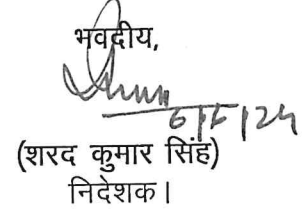 भवदीय,
(शरद कुमार सिंह)
निदेशक।